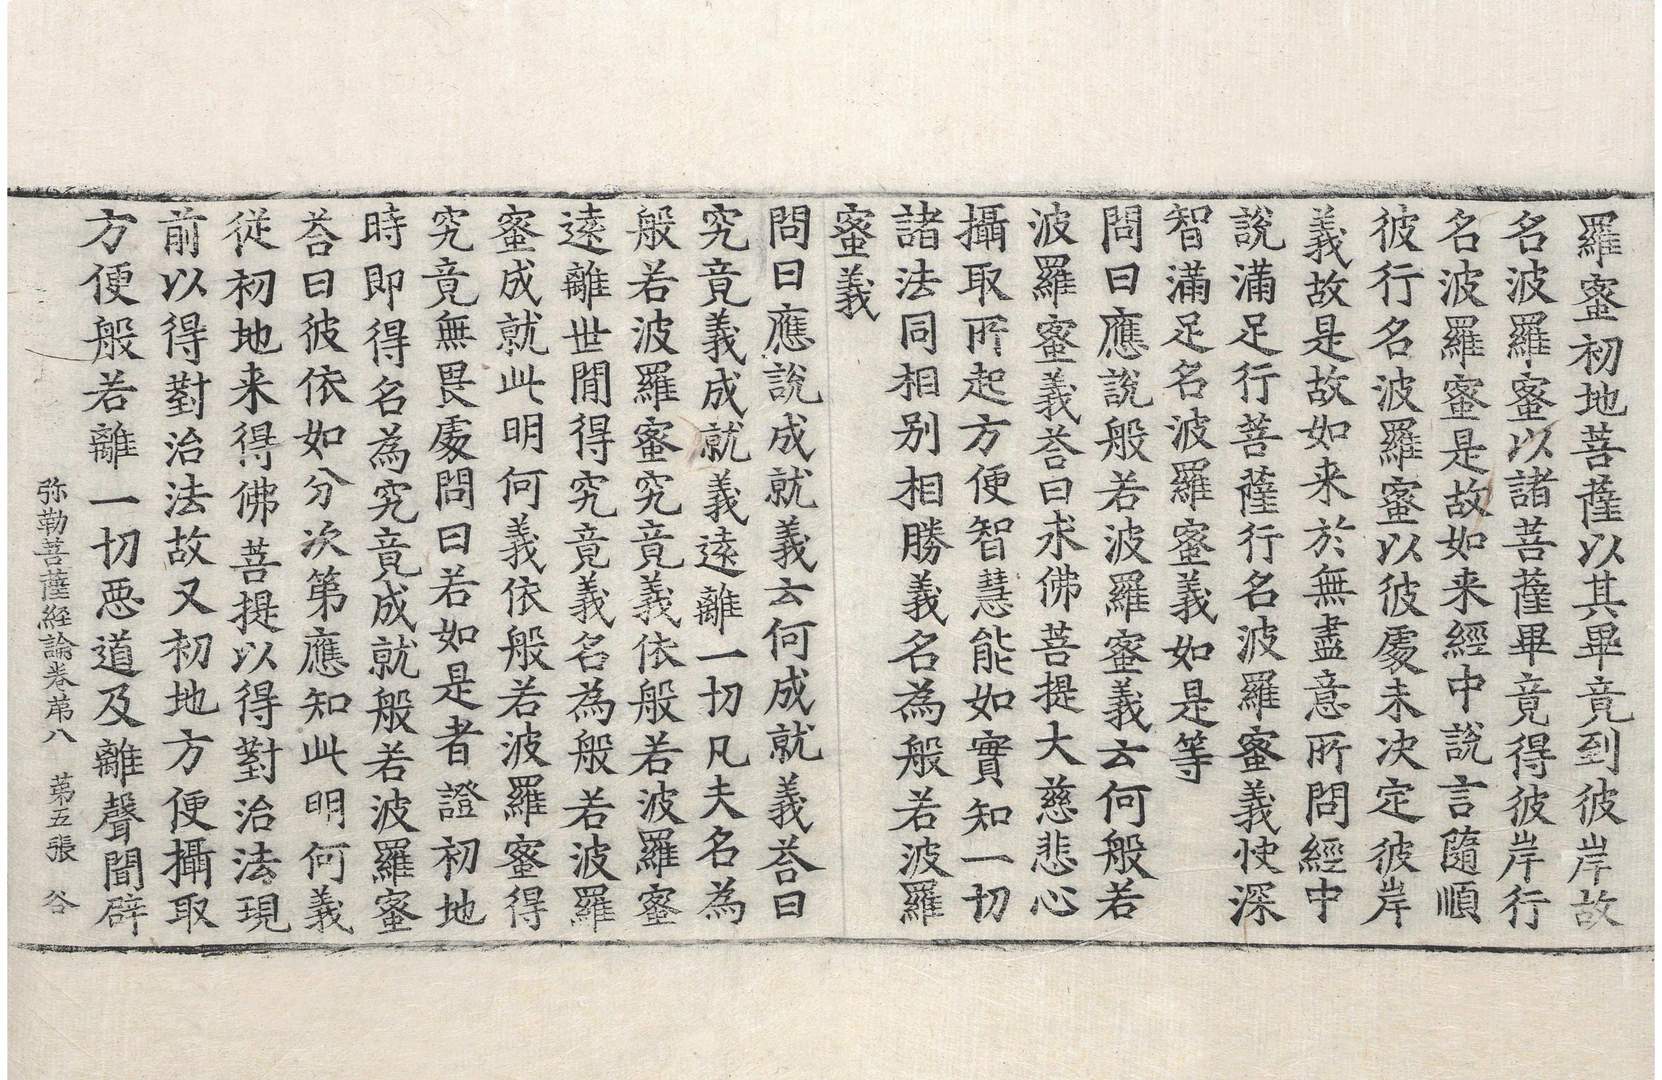 羅蜜初地菩薩以其畢竟到彼岸故
名波羅蜜以諸菩薩畢竟得彼岸行
名波羅蜜是故如来經中說言隨順
彼行名波羅蜜以彼處未决定彼岸
義故是故如来於無盡意所問經中
說滿足行菩薩行名波羅蜜義快深
智滿足名波羅蜜義如是等
問曰應說般若波羅蜜義云何般若
波羅蜜義荅曰求佛菩提大慈悲心
攝取所起方便智慧能如實知一切
諸法同相别相勝義名為般若波羅
蜜義
問曰應說成就義云何成就義荅曰
究竟義成就義遠離一切凡夫名為
般若波羅蜜究竟義依般若波羅蜜
遠離世間得究竟義名為般若波羅
蜜成就此明何義依般若波羅蜜得
究竟無畏處問曰若如是者證初地
時即得名為究竟成就般若波羅蜜
荅曰彼依如分次第應知此明何義
從初地来得佛菩提以得對治法現
前以得對治法故又初地方便攝取
方便般若離一切惡道及離聲聞辟
弥勒菩薩經論卷苐八 苐五張 谷